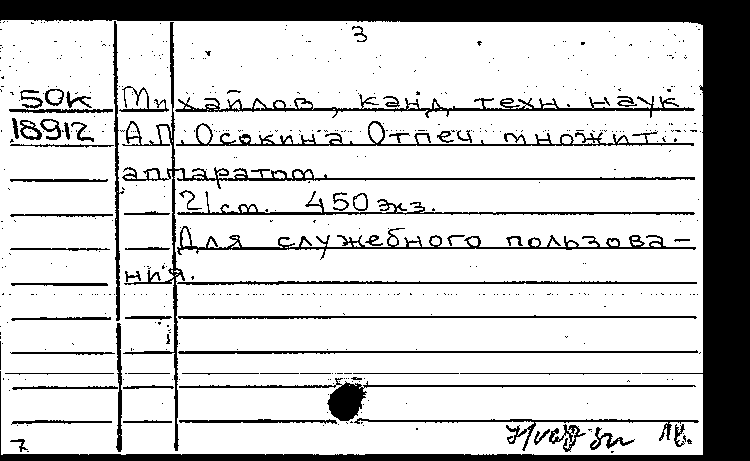 3
50К Михайлов, канд. техн. наук
18912 А.П. Осокина. Отпеч. множит.
аппаратом.
21 ст. 450 экз.
Для служебного пользова-
ния.
7